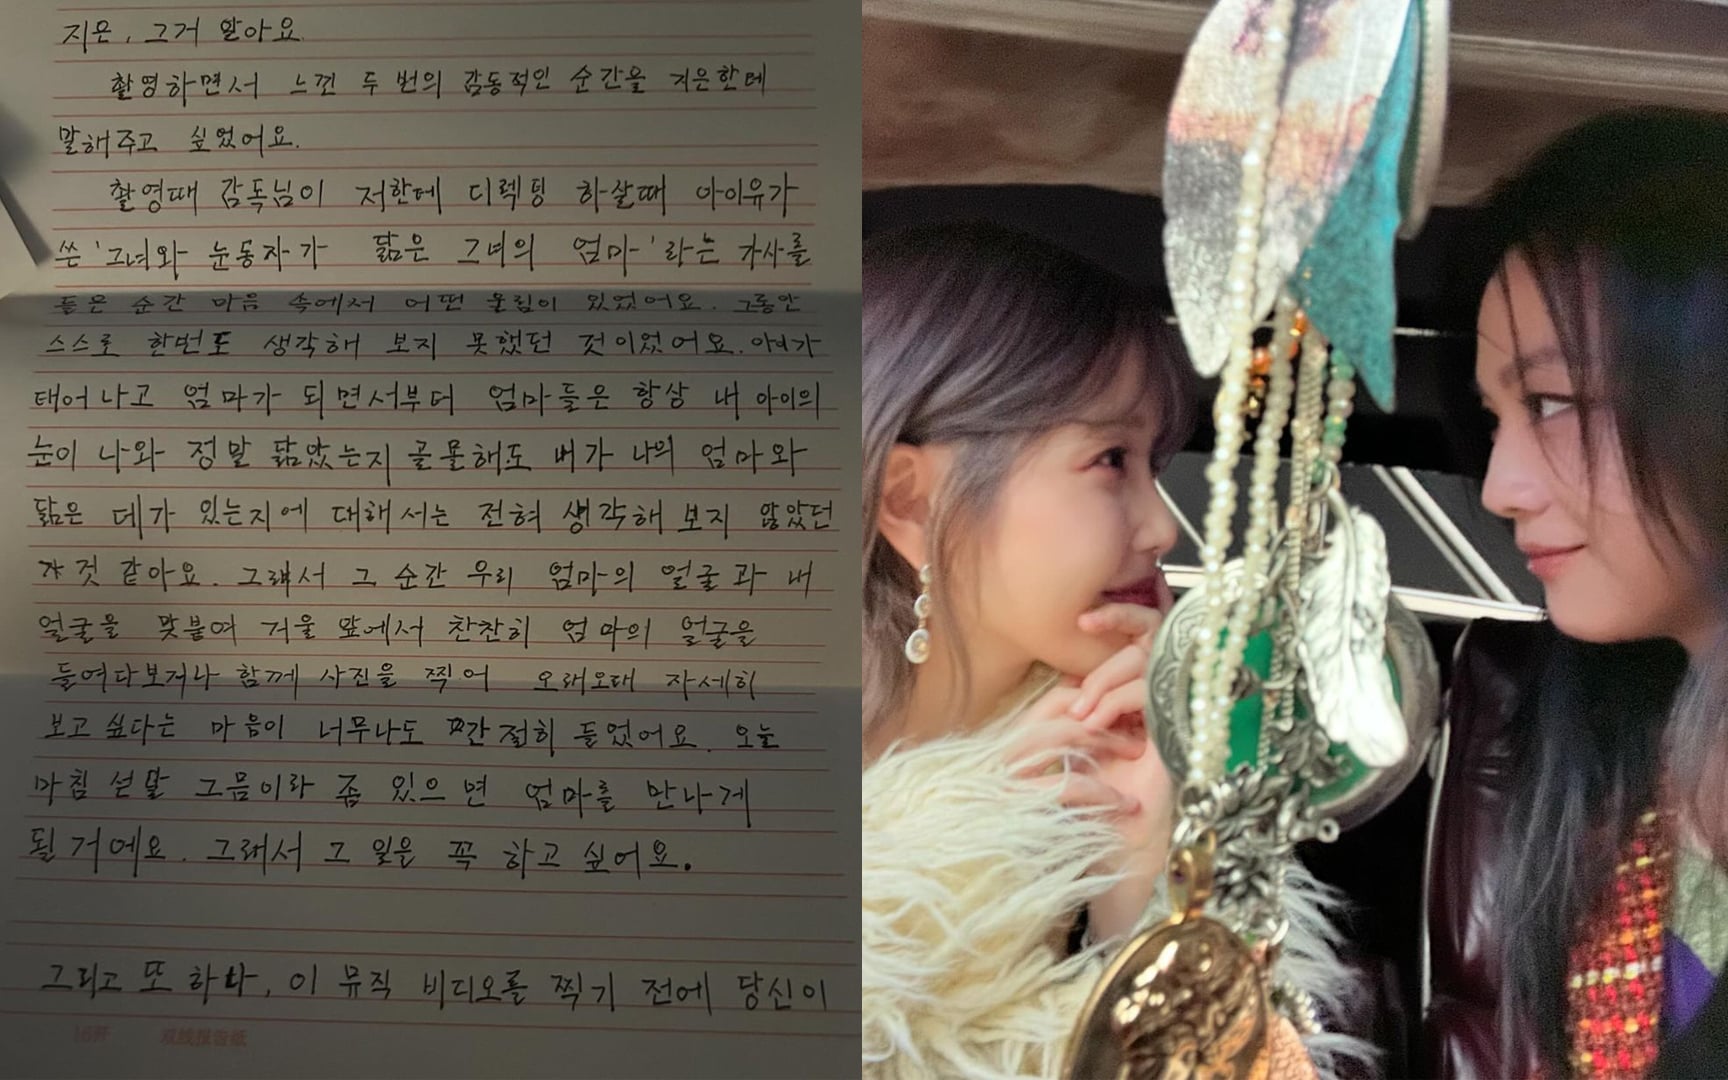 지은, 그거 알아요.
촬영하면서 느낀 두 번의 감동적인 순간을 지은한테
말해주고 싶었어요.
촬영때 감독님이 저한테 디렉팅 하살때 아이유가
쓴 '그녀와 눈동자가 닮은 그녀의 엄마'라는 가사를
들은 순간 마음 속에서 어떤 울림이 있었어요. 그동안
스스로 한번도 생각해 보지 못했던 것이었어요. 아이가
태어나고 엄마가 되면서부터 엄마들은 항상 내 아이의
눈이 나와 정말 닮았는지 골몰해도 내가 나의 엄마와
닮은 데가 있는지에 대해서는 전혀 생각해 보지 않았던
것 같아요. 그래서 그 순간 우리 엄마의 얼굴과 내
얼굴을 맞붙여 거울 앞에서 찬찬히 엄마의 얼굴을
들여다보거나 함께 사진을 찍어 오래오래 자세히
보고 싶다는 마음이 너무나도 간절히 들었어요. 오늘
마침 섣달 그믐이라 좀 있으면 엄마를 만나게
될 거예요. 그래서 그 일을 꼭 하고 싶어요.
그리고 또 하나, 이 뮤직 비디오를 찍기 전에 당신이
16开 双线报告纸